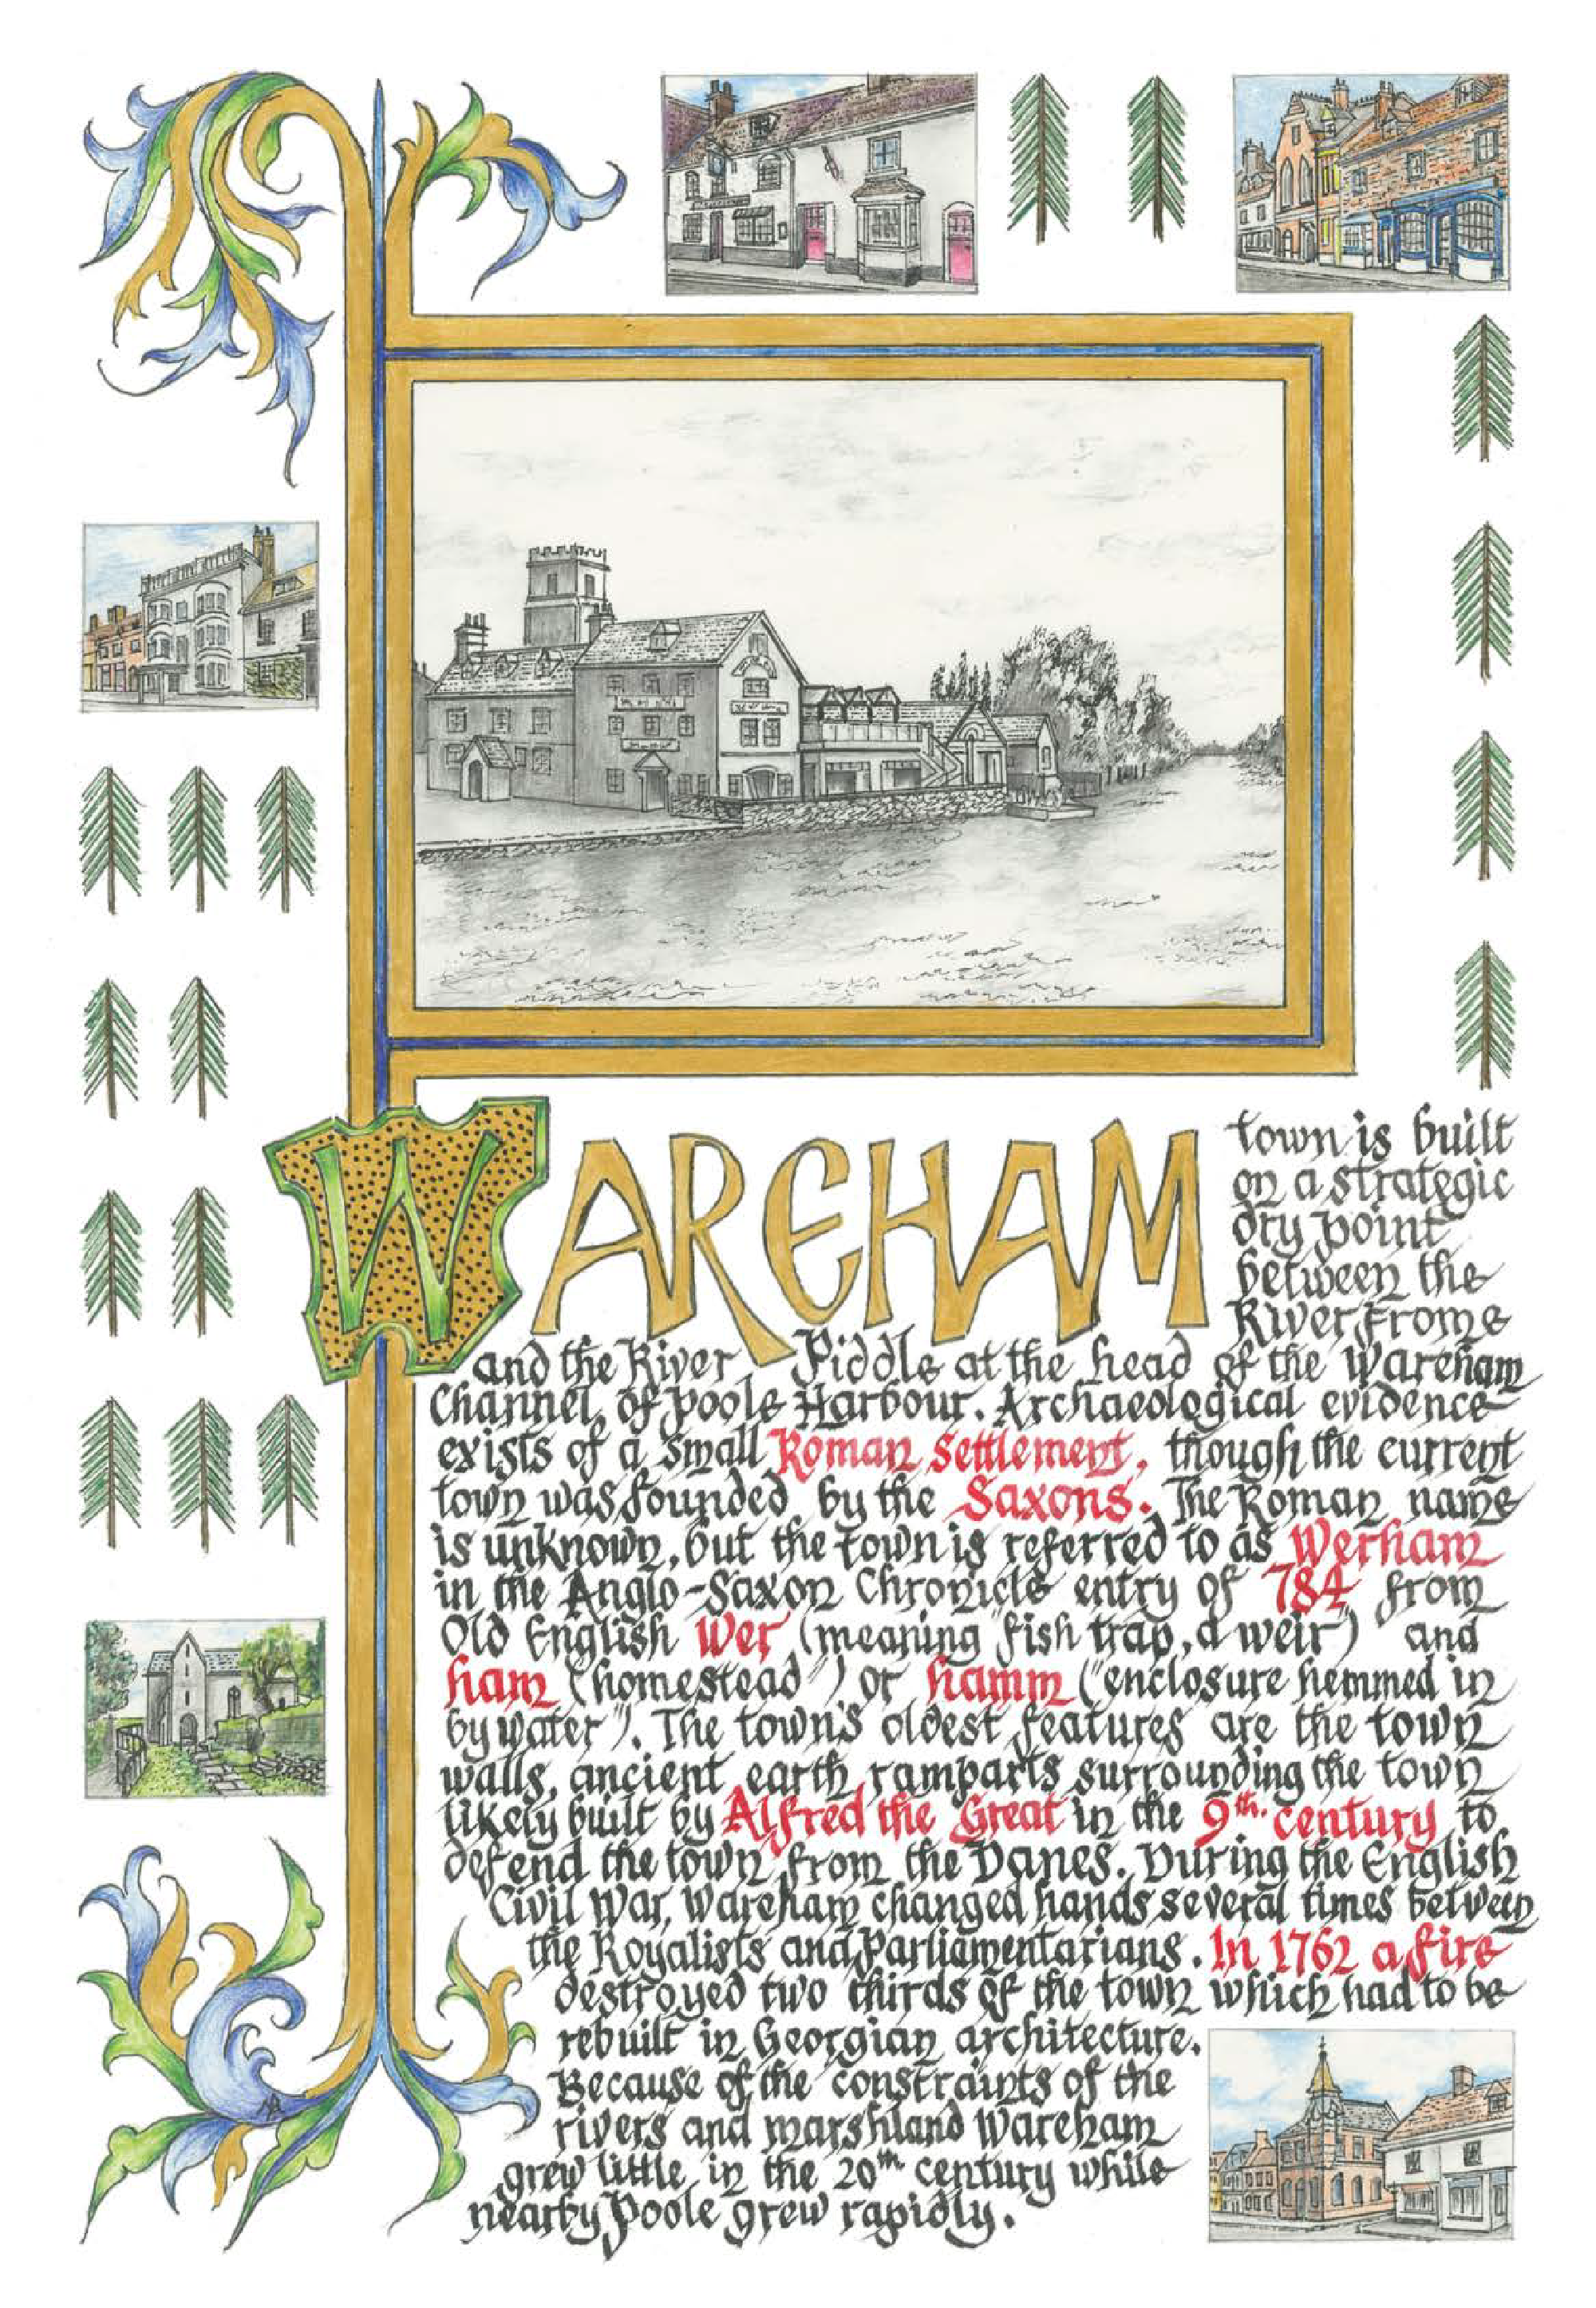 WAREHAM
town is built
on a strategic
dry point
between the
River Frome
and the River Piddle at the head of the Wareham
Channel, of Poole Harbour. Archaeological evidence
exists of a small Roman Settlement, though the current
town was founded by the Saxons. The Roman name
is unknown, but the town is referred to as Werham
in the Anglo-Saxon Chronicle entry of 784 from
Old English Wer (meaning "fish trap, a weir") and
ham ("homestead") or hamm ("enclosure hemmed in
by water"). The town's oldest features are the town
walls, ancient earth ramparts surrounding the town
likely built by Alfred the Great in the 9th. century to
defend the town from the Danes. During the English
Civil War, Wareham changed hands several times between
the Royalists and Parliamentarians. In 1762 a fire
destroyed two thirds of the town which had to be
rebuilt in Georgian architecture.
Because of the constraints of the
rivers and marshland Wareham
grew little in the 20th century while
nearby Poole grew rapidly.